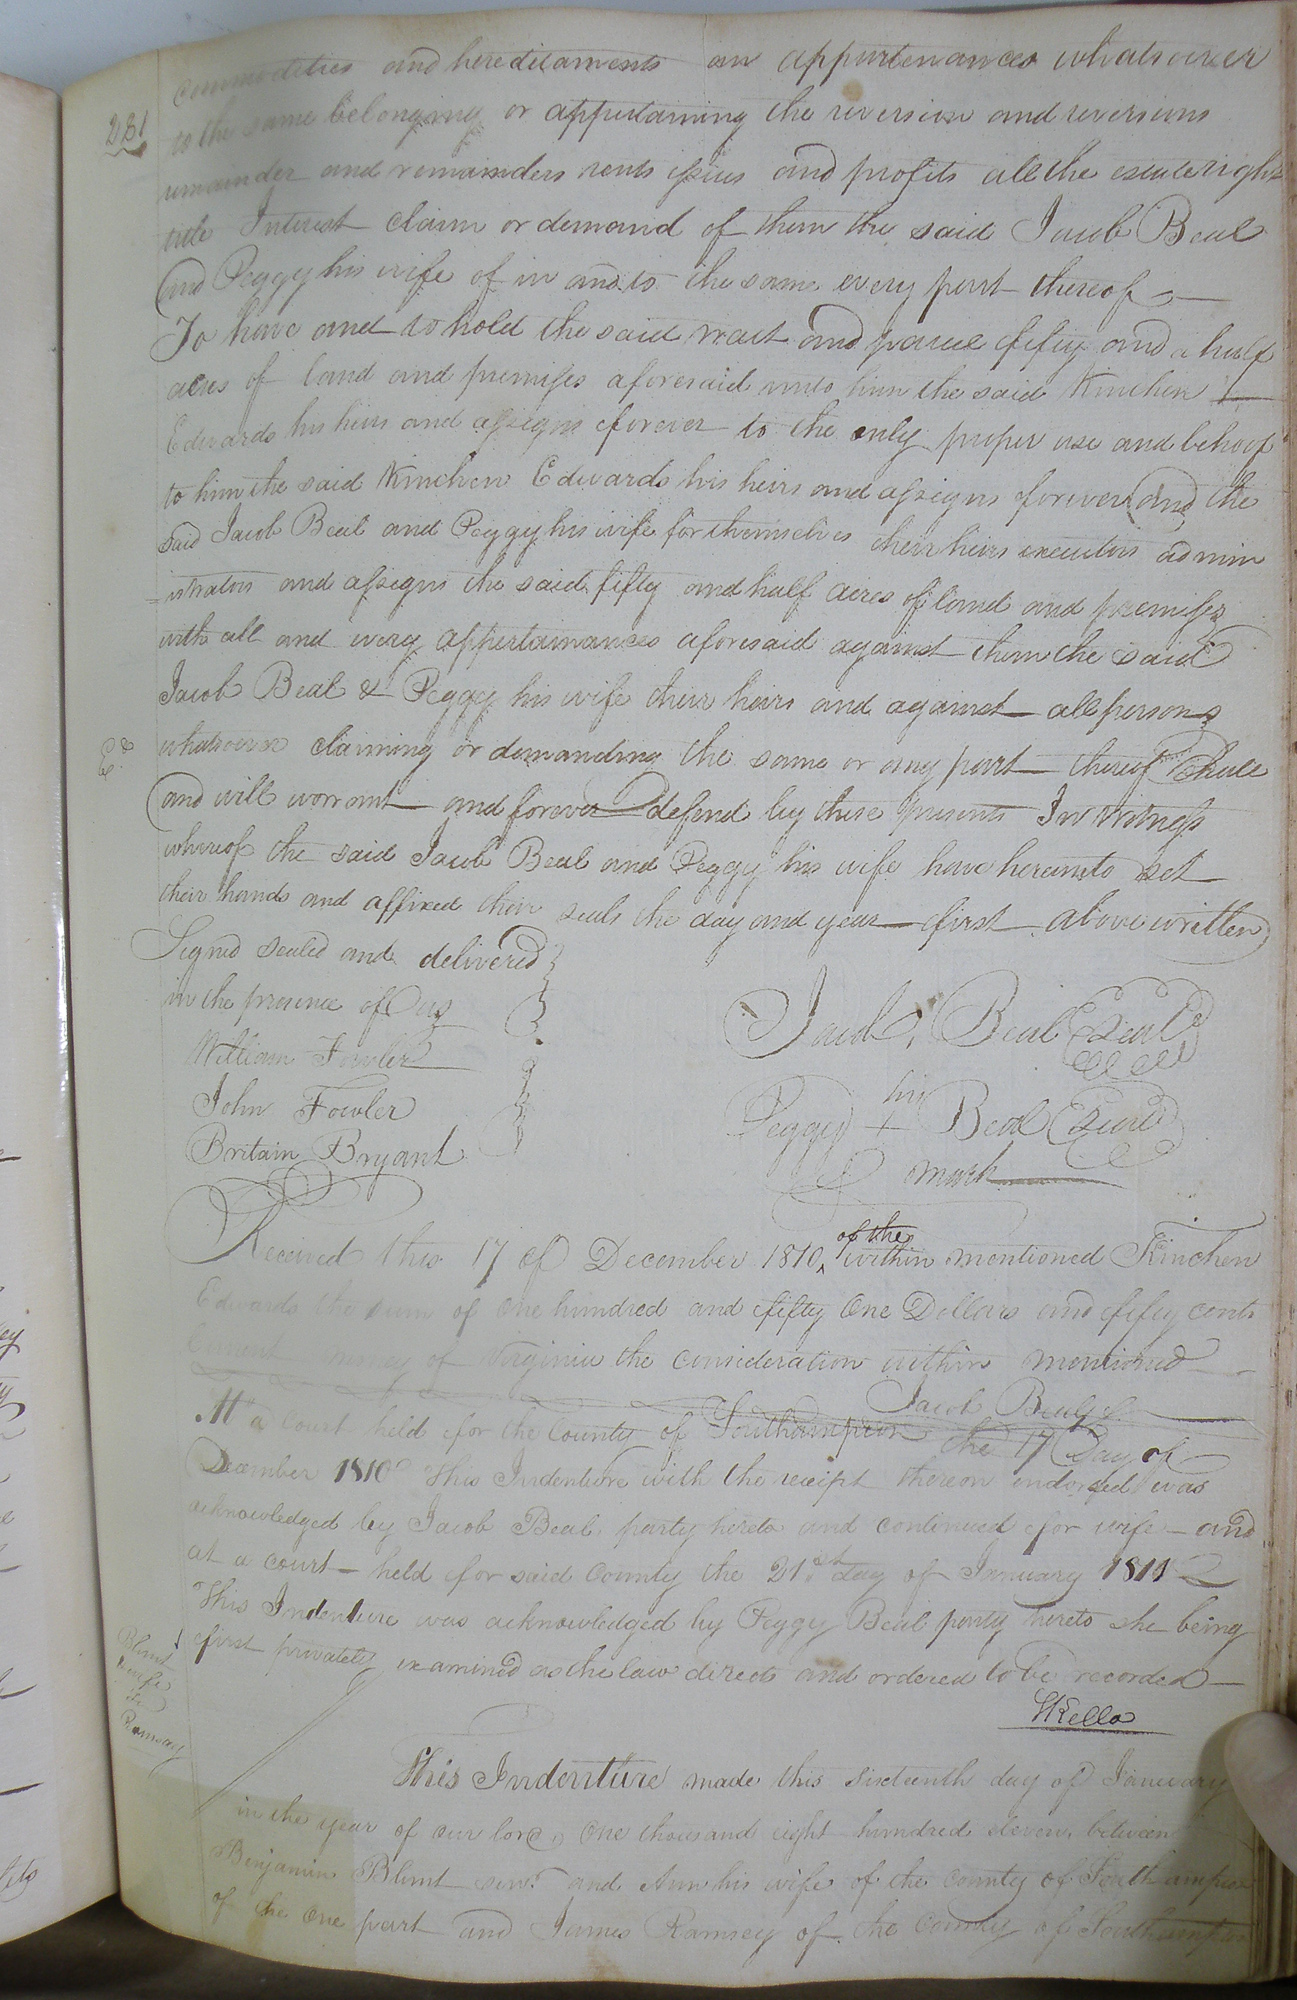 commodities and hereditaments an appurtenances whatsoever
281
to the same belonging or appertaining the reversion and reversions
remainder and remainders rents issues and profits all the estate right
title Interest claim or demand of them the said Jacob Beal
and Peggy his wife of in and to the same every part thereof
To have and to hold the said tract and parcel fifty and a half
acres of land and premises aforesaid unto him the said Kinchen
Edwards his heirs and assigns forever to the only proper use and behoof
to him the said Kinchen Edwards his heirs and assigns forever and the
said Jacob Beal and Peggy his wife for themselves their heirs executors admin
=istrators and assigns the said fifty and half acres of land and premises
with all and every appertainances aforesaid against them the said
Jacob Beal & Peggy his wife their heirs and against all persons
whatsoever claiming or demanding the same or any part thereof Shall
Ed
and will warrant and forever defend by these presents In witness
whereof the said Jacob Beal and Peggy his wife have hereunto set
their hands and affixed their seals the day and year first above written
Signed sealed and delivered
in the presence of us
Jacob Beal Seal
William Fowler
John Fowler
his
Peggy + Beal Seal
Britain Bryant
mark
of the
Received this 17 of December 1810 ^ within mentioned Kinchen
Edwards the sum of One hundred and fifty One Dollars and fifty cents
Current money of Virginia the consideration within mentioned
Jacob Beal
At a Court held for the County of Southampton the 17 Day of
December 1810 This Indenture with the receipt thereon endorsed was
acknowledged by Jacob Beal party hereto and continued for wife and
at a court held for said County the 21st day of January 1811
This Indenture was acknowledged by Peggy Beal party hereto she being
first privately examined as the law directs and ordered to be recorded
Blunt
& wife
To
Ramsey
SKello
This Indenture made this sixteenth day of January
in the year of our lord One thousand eight hundred eleven between
Benjamin Blunt senr. and Ann his wife of the County of Southampton
of the One part and James Ramsey of the County of Southampton